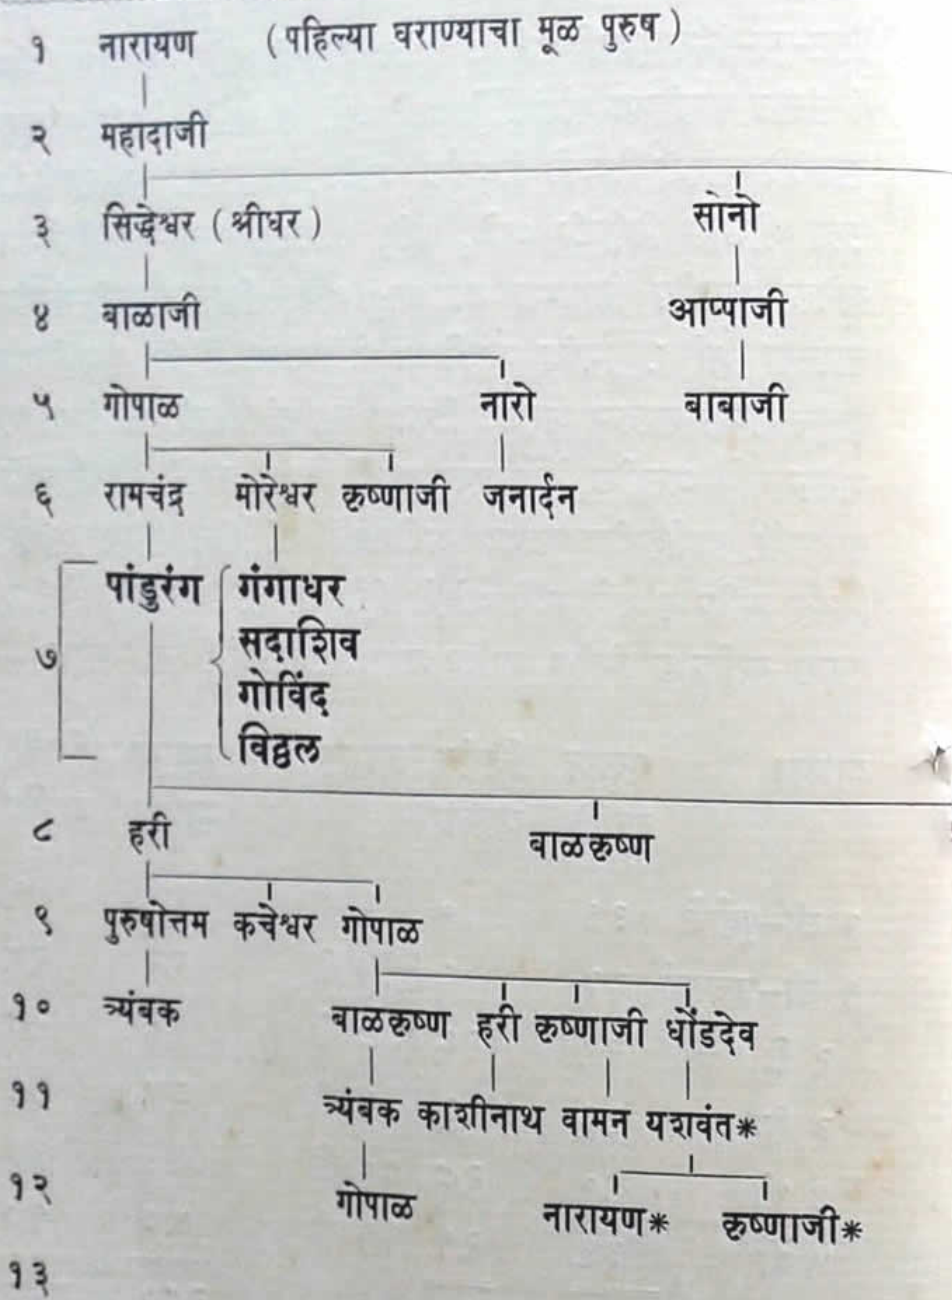 १ नारायण (पहिल्या घराण्याचा मूळ पुरुष)
२ महादाजी
३ सिद्धेश्वर (श्रीधर) सोनो
४ बाळाजी आप्पाजी
५ गोपाळ नारो बाबाजी
६ रामचंद्र मोरेश्वर कृष्णाजी जनार्दन
पांडुरंग गंगाधर
सदाशिव
७ गोविंद
विठ्ठल
८ हरी बाळकृष्ण
९ पुरुषोत्तम कचेश्वर गोपाळ
१० त्र्यंबक बाळकृष्ण हरी कृष्णाजी धोंडदेव
११ त्र्यंबक काशीनाथ वामन यशवंत*
१२ गोपाळ नारायण* कृष्णाजी*
१३